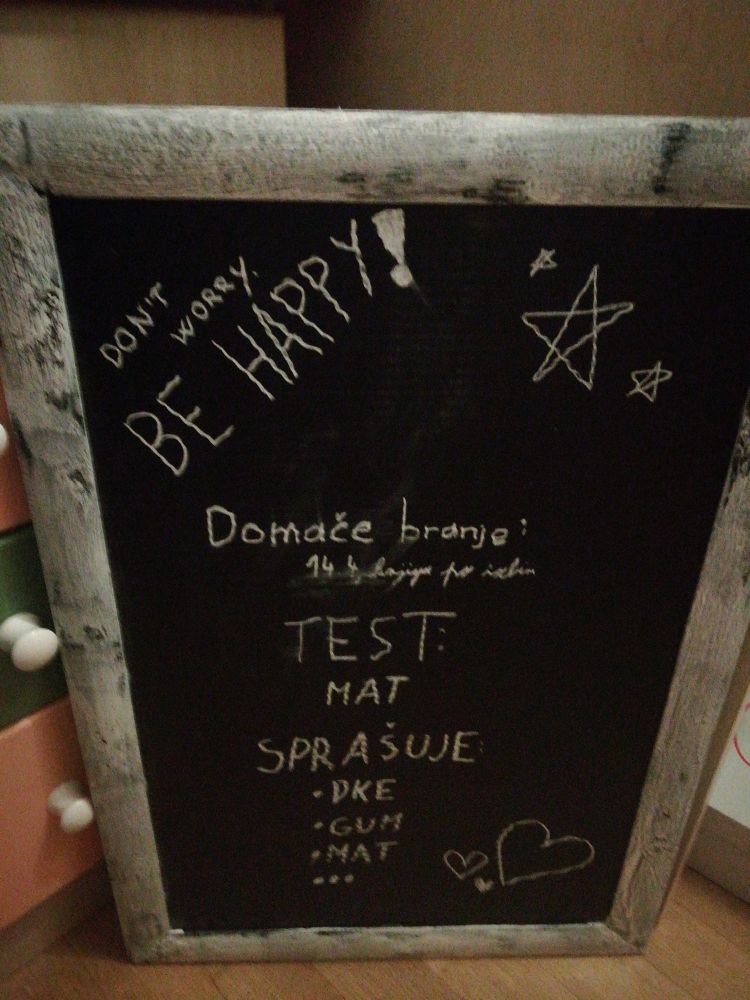 DON'T
WORRY.
BE HAPPY!
Domače branje:
14.4. knjiga po izbiri
TEST:
MAT
SPRAŠUJE:
•DKE
•GUM
•MAT
•••